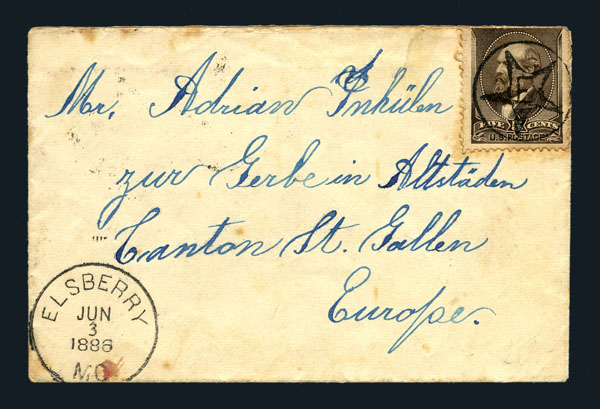 Mr. Adrian Inhülen
zur Gerbe in Altstäden
Canton St. Gallen
Europe.
FIVE 5 CENTS
U.S. POSTAGE
ELSBERRY
JUN
3
1886
MO